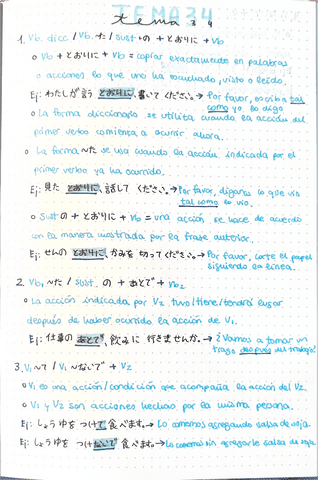 TEMA 34
tema 34
1. Vb. dicc / Vb. た / Sust + の + とおりに + Vb
○ Vb + とおりに + Vb = copiar exactamente en palabras
o acciones lo que uno ha escuchado, visto o leído.
Ej: わたしが言う とおりに、書いて ください。→ Por favor, escriba tal
como yo lo digo
○ La forma diccionario se utiliza cuando la acción del
primer verbo comienza a ocurrir ahora.
○ La forma ~た se usa cuando la acción indicada por el
primer verbo ya ha ocurrido.
Ej: 見た とおりに、話して ください。→ Por favor, díganos lo que vio
tal como lo vio.
○ Sust の + とおりに + Vb = una acción se hace de acuerdo
con la manera mostrada por la frase anterior.
Ej: せんの とおりに、かみを 切って ください。→ Por favor, corte el papel
siguiendo la línea.
2. Vb₁ ~た / Sust. の + あとで + Vb₂
○ La acción indicada por V₂ tuvo/tiene/tendrá lugar
después de haber ocurrido la acción de V₁.
Ej: 仕事の あとで、飲みに 行きませんか。→ ¿Vamos a tomar un
trago después del trabajo?
3. V₁ ~て / V₁ ~ないで + V₂
○ V₁ es una acción/condición que acompaña la acción del V₂.
○ V₁ y V₂ son acciones hechas por la misma persona.
Ej: しょうゆを つけて 食べます。→ Lo comemos agregando salsa de soja.
Ej: しょうゆを つけないで 食べます。→ Lo comemos sin agregarle salsa de soja.